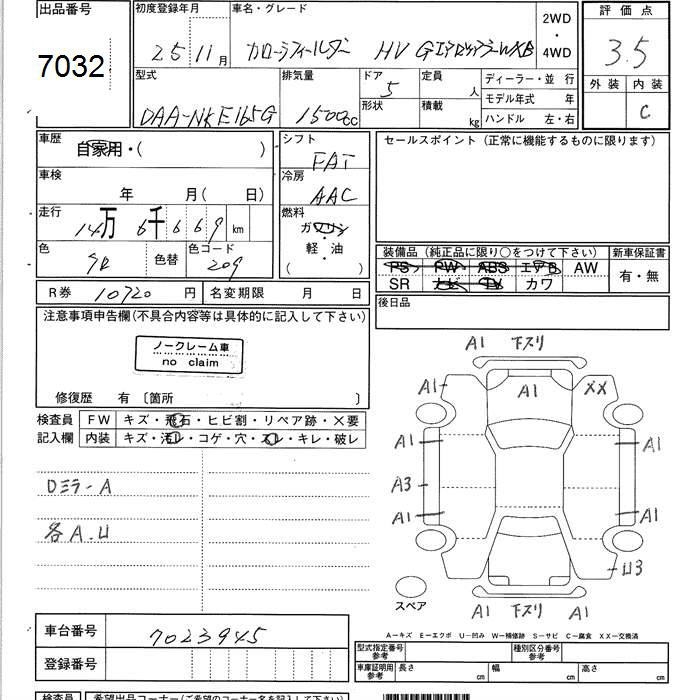 出品番号 初度登録年月 車名・グレード 2WD 評価点
7032 25 11月 カローラフィールダー HV Gエアロツアラー WXB ・ 4WD 3.5
型式 排気量 ドア 定員 ディーラー・並 行 外装 内装
DAA-NKE165G 1500cc 5 人 モデル年式 年 C
形状 積載 kg ハンドル 左・右
車歴 自家用・( ) シフト FAT セールスポイント (正常に機能するものに限ります)
車検 年 月(日) 冷房 AAC
走行 14万 6千 6 6 9 km 燃料 ガソリン・軽・油 ( )
色 色替 色コード 209 装備品 (純正品に限り○をつけて下さい) 新車保証書
PS PW ABS エアB AW 有・無
SR ナビ TV カワ
R券 10720 円 名変期限 月 日 後日品
注意事項申告欄(不具合内容等は具体的に記入して下さい)
ノークレーム車
no claim
修復歴 有 〔箇所 〕
検査員 FW キズ・飛石・ヒビ割・リペア跡・×要
記入欄 内装 キズ・汚レ・コゲ・穴・スレ・キレ・破レ
Dミラー A
各A.U
A1 下スリ
A1 A1 XX
A1 A1
A3
A1 A1
U3
スペア
A1 下スリ A1
A―キズ E―エクボ U―凹み W―補修跡 S―サビ C―腐食 XX―交換済
車台番号 7023945
登録番号
型式指定番号 参考 種別区分番号 参考
車庫証明用 参考 長さ cm 幅 cm 高さ cm
検査員 希望出品コーナー(ご希望のコーナー名を記入下さい)